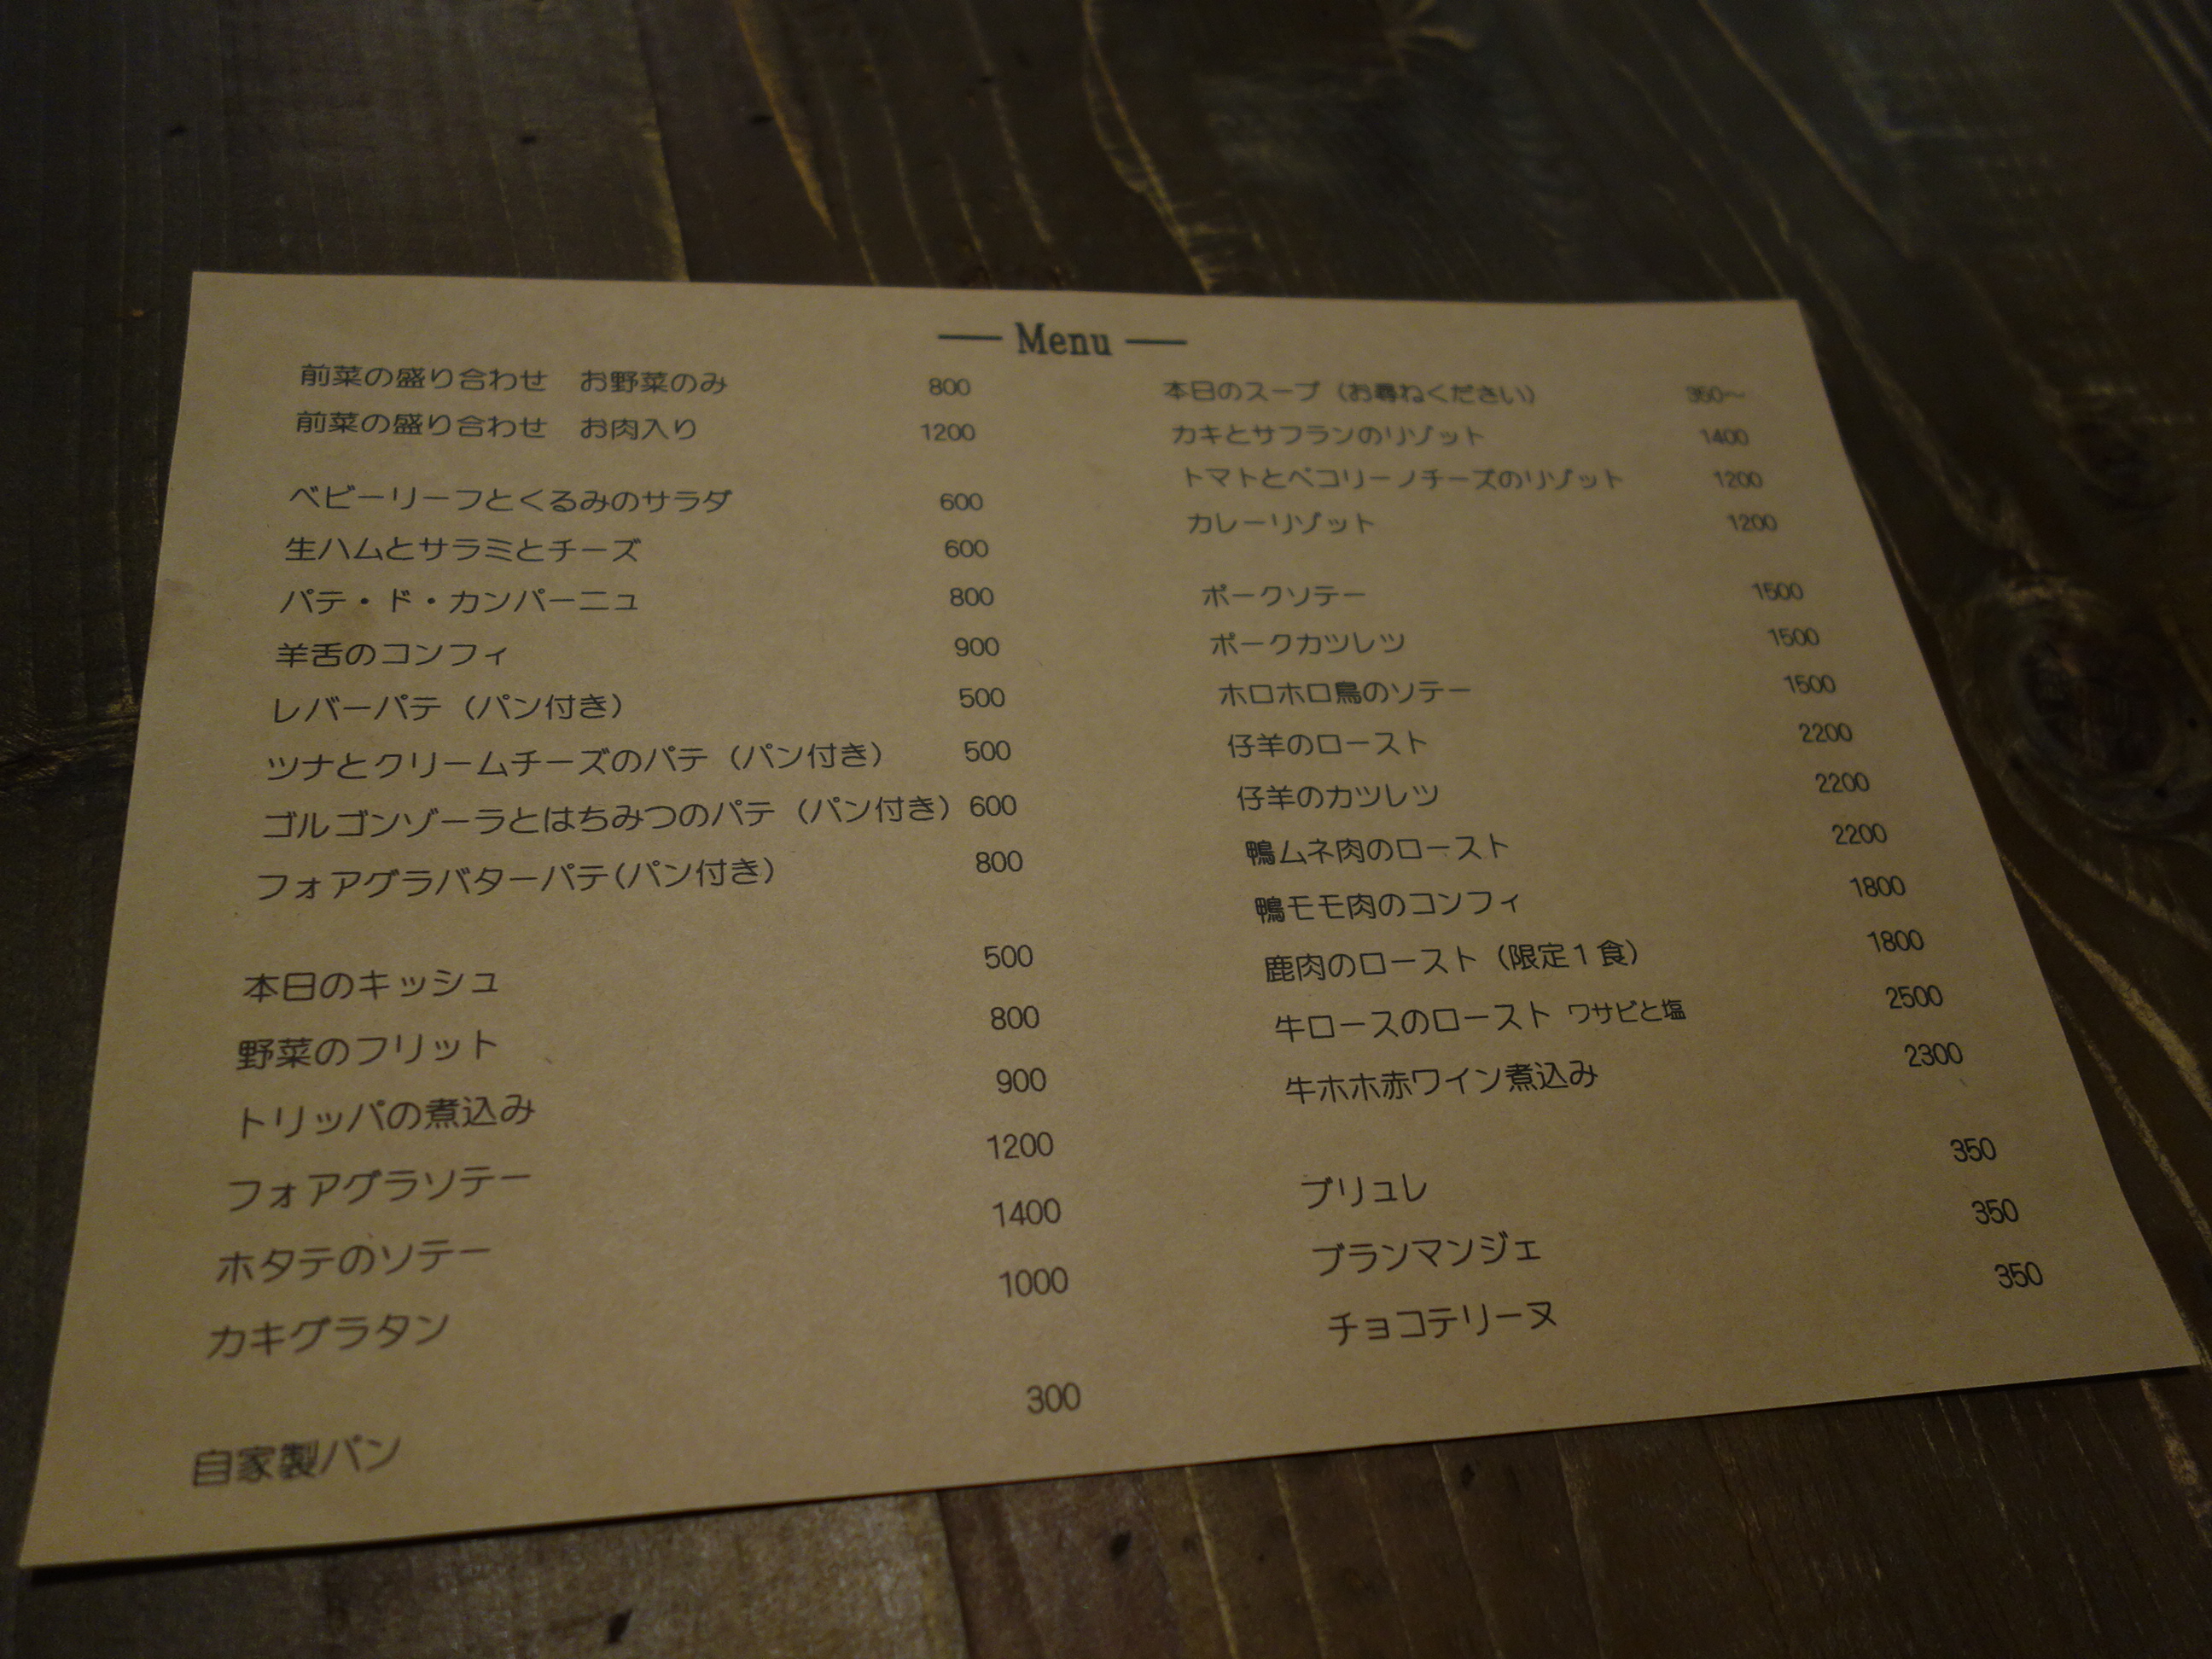 Menu
前菜の盛り合わせ　お野菜のみ 800
前菜の盛り合わせ　お肉入り 1200
ベビーリーフとくるみのサラダ 600
生ハムとサラミとチーズ 600
パテ・ド・カンパーニュ 800
羊舌のコンフィ 900
レバーパテ（パン付き） 500
ツナとクリームチーズのパテ（パン付き） 500
ゴルゴンゾーラとはちみつのパテ（パン付き） 600
フォアグラバターパテ(パン付き） 800
本日のキッシュ 500
野菜のフリット 800
トリッパの煮込み 900
フォアグラソテー 1200
ホタテのソテー 1400
カキグラタン 1000
自家製パン 300
本日のスープ（お尋ねください） 350～
カキとサフランのリゾット 1400
トマトとペコリーノチーズのリゾット 1200
カレーリゾット 1200
ポークソテー 1500
ポークカツレツ 1500
ホロホロ鳥のソテー 1500
仔羊のロースト 2200
仔羊のカツレツ 2200
鴨ムネ肉のロースト 2200
鴨モモ肉のコンフィ 1800
鹿肉のロースト（限定１食） 1800
牛ロースのロースト ワサビと塩 2500
牛ホホ赤ワイン煮込み 2300
ブリュレ 350
ブランマンジェ 350
チョコテリーヌ 350